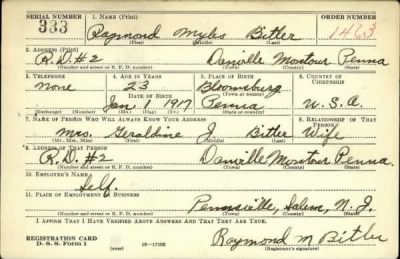 SERIAL NUMBER 1. NAME (Print) ORDER NUMBER
333 Raymond Myles Bitler 1463
(First) (Middle) (Last)
2. ADDRESS (Print)
R.D.#2 Danville Montour Penna
(Number and street or R. F. D. number) (Town) (County) (State)
3. TELEPHONE 4. AGE IN YEARS 5. PLACE OF BIRTH 6. COUNTRY OF CITIZENSHIP
None 23 Bloomsburg
DATE OF BIRTH (Town or county)
Jan 1 1917 Penna U.S.A.
(Exchange) (Number) (Mo.) (Day) (Yr.) (State or country)
7. NAME OF PERSON WHO WILL ALWAYS KNOW YOUR ADDRESS 8. RELATIONSHIP OF THAT PERSON
Mrs. Geraldine J Bitler Wife
(Mr., Mrs., Miss) (First) (Middle) (Last)
9. ADDRESS OF THAT PERSON
R.D. #2 Danville Montour Penna.
(Number and street or R. F. D. number) (Town) (County) (State)
10. EMPLOYER'S NAME
Self.
11. PLACE OF EMPLOYMENT OR BUSINESS
Pennsville, Salem, N.J.
(Number and street or R. F. D. number) (Town) (County) (State)
I AFFIRM THAT I HAVE VERIFIED ABOVE ANSWERS AND THAT THEY ARE TRUE.
REGISTRATION CARD Raymond M Bitler
D. S. S. Form 1 (over) 16—17105 (Registrant's signature)